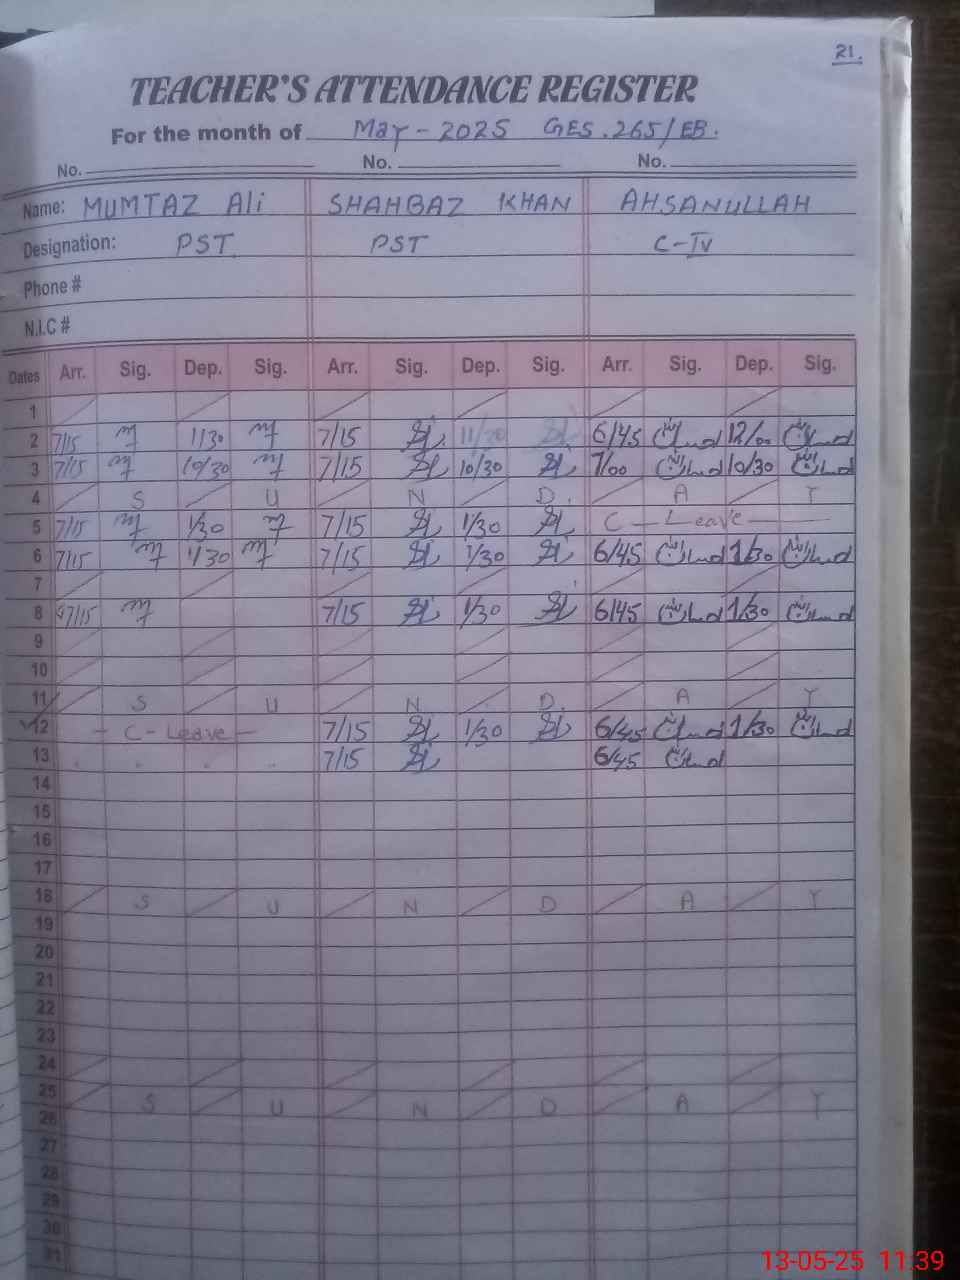 21.
TEACHER'S ATTENDANCE REGISTER
For the month of May - 2025 GES. 265/EB.
No. No. No.
Name: MUMTAZ Ali SHAHBAZ KHAN AHSANULLAH
Designation: PST PST C-IV
Phone #
N.I.C #
Dates Arr. Sig. Dep. Sig. Arr. Sig. Dep. Sig. Arr. Sig. Dep. Sig.
1
2 7/15 1130 7/15 11/30 6/45 12/00
3 7/15 10/30 7/15 10/30 7/00 10/30
4 S U N D. A Y
5 7/15 1/30 7/15 1/30 C - Leave
6 7/15 1/30 7/15 1/30 6/45 1/30
7
8 7/15 7/15 1/30 6/45 1/30
9
10
11 S U N D. A Y
12 - C - Leave - 7/15 1/30 6/45 1/30
13 7/15 6/45
14
15
16
17
18 S U N D A Y
19
20
21
22
23
24
25 S U N D A Y
26
27
28
29
30
31
13-05-25 11:39